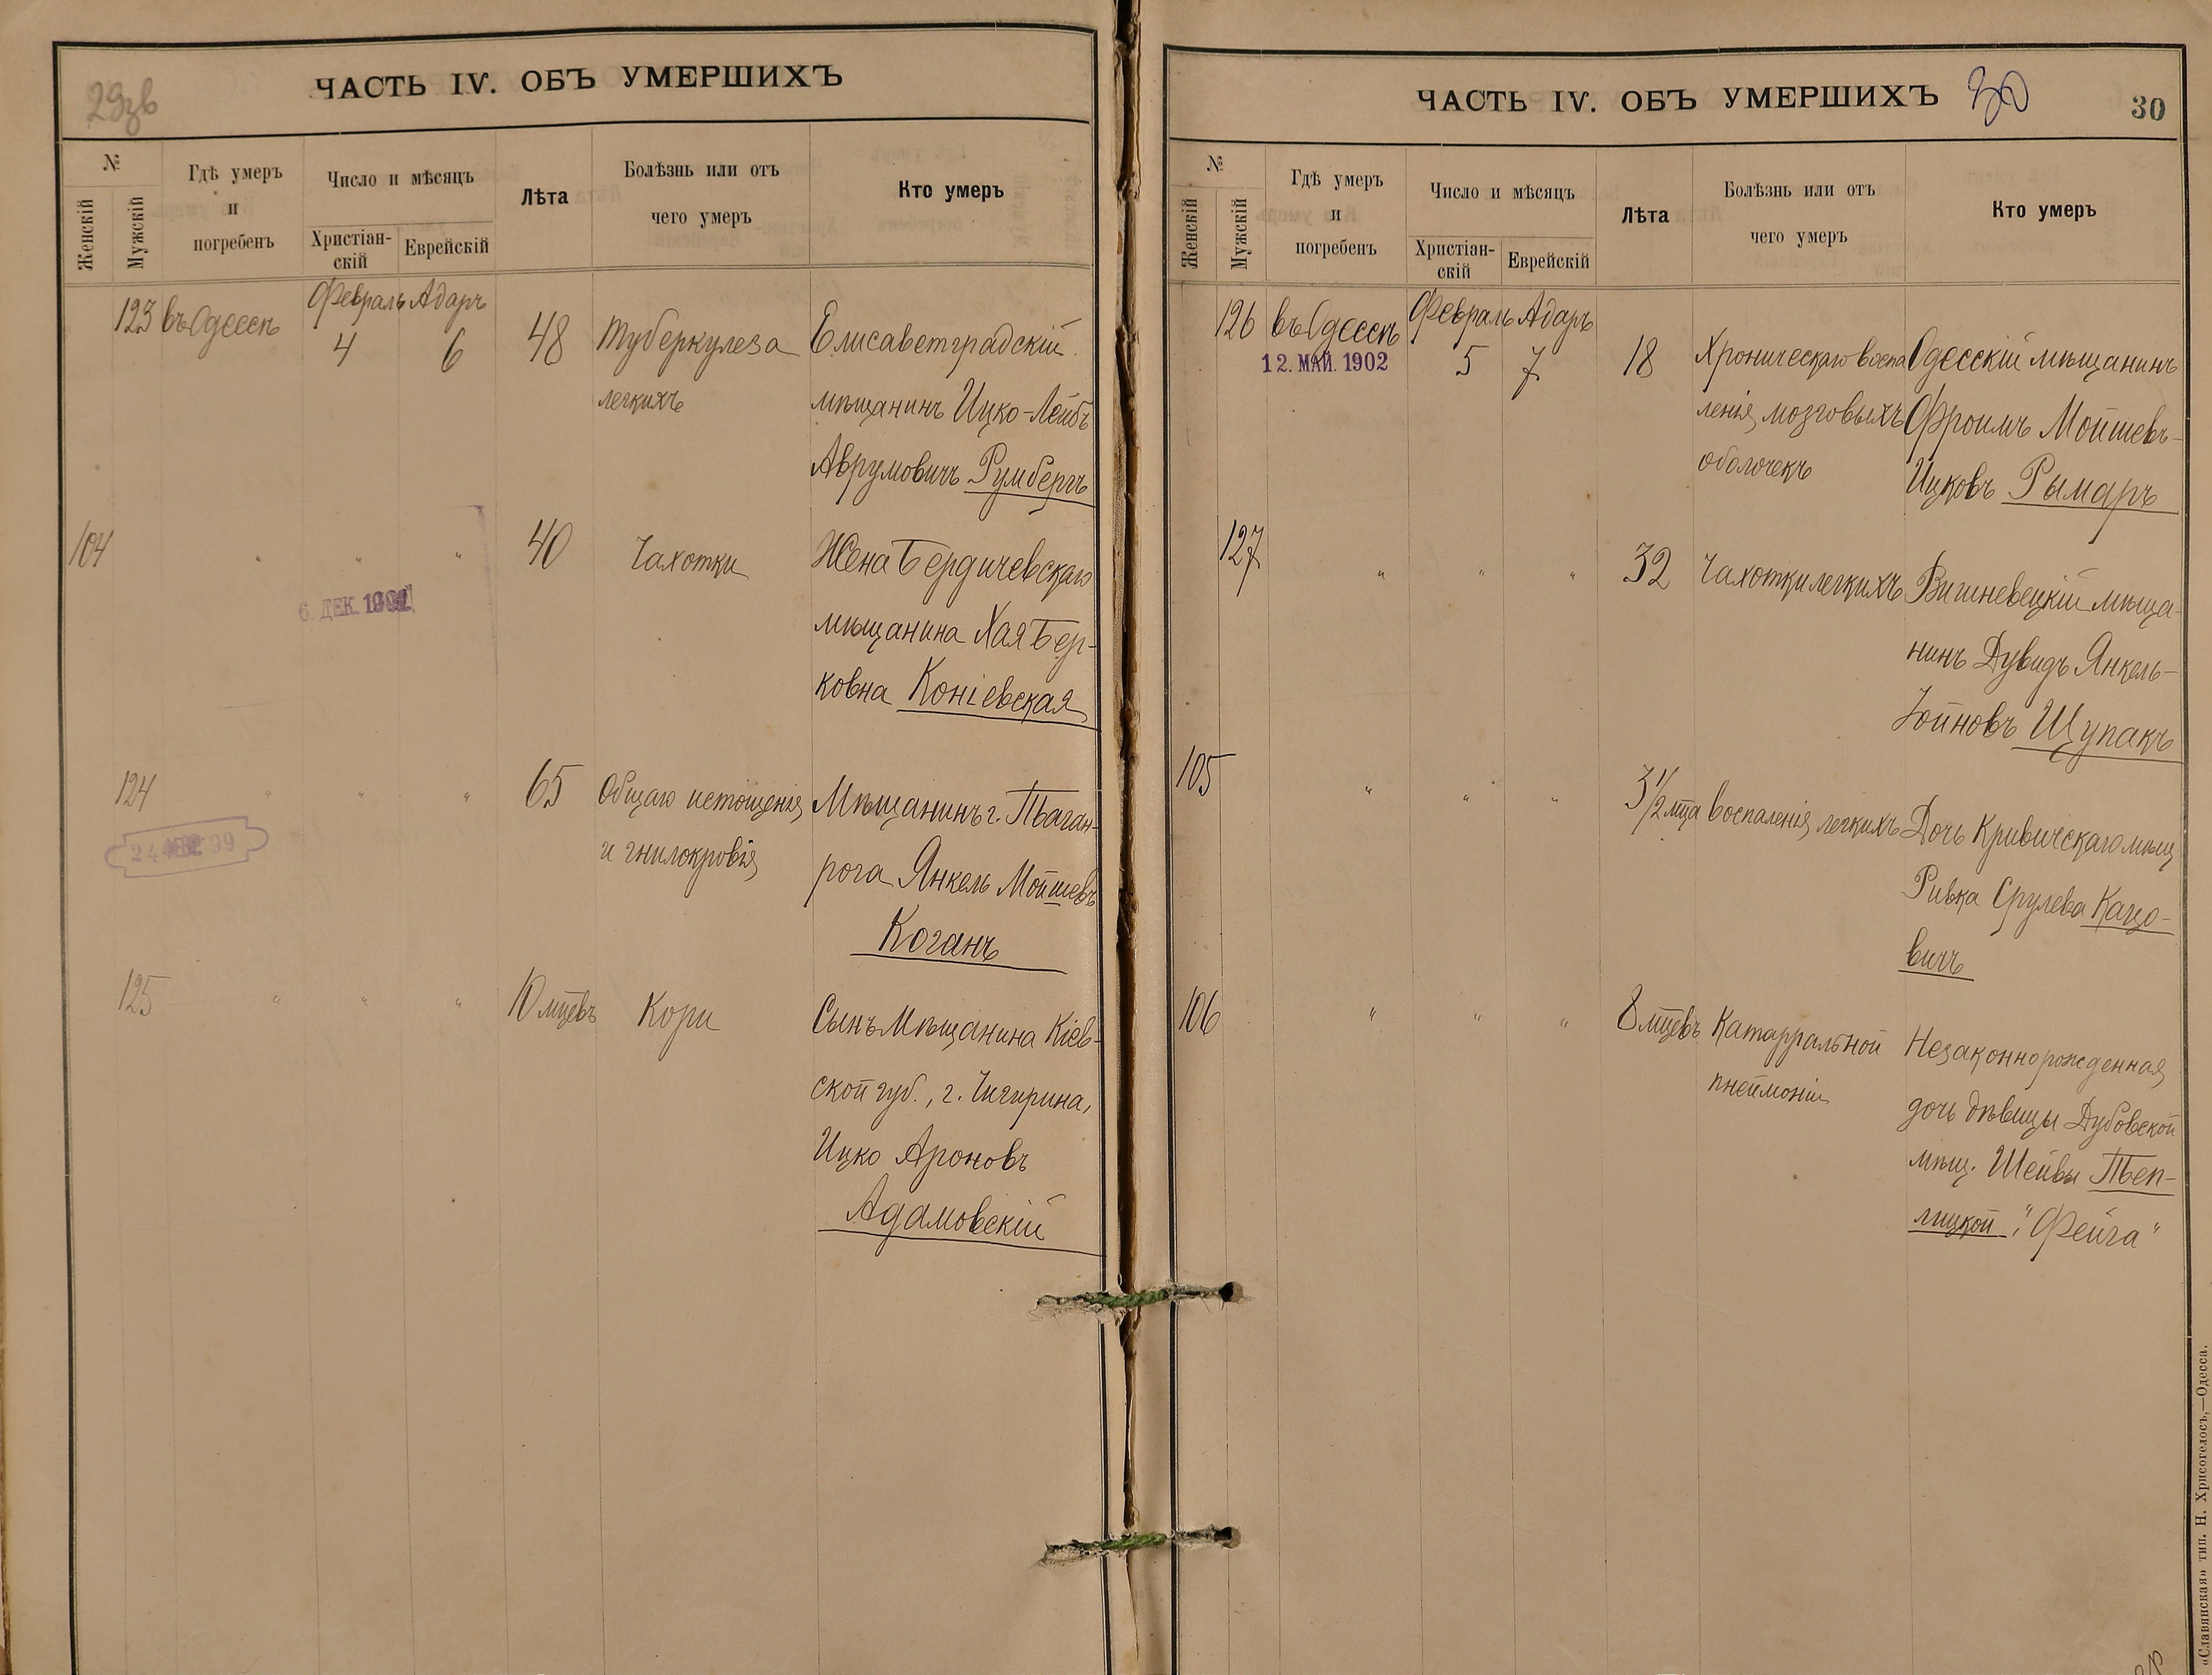 29зв
ЧАСТЬ IV. ОБЪ УМЕРШИХЪ
№
Женскій
Мужскій
Гдѣ умеръ
и
погребенъ
Число и мѣсяцъ
Христіан-
скій
Еврейскій
Лѣта
Болѣзнь или отъ
чего умеръ
Кто умеръ
Февраль Адаръ
123 въ Одессѣ 4 6 48 Туберкулеза Елисаветградскій
легкихъ мѣщанинъ Ицко-Лейбъ
Аврумовичъ Румбергъ
104 " " " 40 Чахотки Жена Бердичевскаго
6. ДЕК. мѣщанина Хая Бер-
ковна Коніевская
124 " " " 65 Общаго истощенія Мѣщанинъ г. Таган-
и гнилокровія рога Янкель Мойшевъ
Коганъ
125 " " " 10 мцевъ Кори Сынъ Мѣщанина Кіев-
ской губ., г. Чигирина,
Ицко Ароновъ
Адамовскій
ЧАСТЬ IV. ОБЪ УМЕРШИХЪ 30
30
№
Женскій
Мужскій
Гдѣ умеръ
и
погребенъ
Число и мѣсяцъ
Христіан-
скій
Еврейскій
Лѣта
Болѣзнь или отъ
чего умеръ
Кто умеръ
Февраль Адаръ
126 въ Одессѣ 5 7 18 Хроническаго воспа Одесскій мѣщанинъ
12. МАЙ. 1902
ленія мозговыхъ Фроимъ Мойшевъ-
оболочекъ Ицковъ Рымаръ
127 " " " 32 Чахотки легкихъ Вишневецкій мѣща-
нинъ Дувидъ Янкель-
Іойновъ Щупакъ
105 " " " 3 1/2 мца воспаленія легкихъ Дочь Кривичскаго мѣщ.
Ривка Срулева Кацо-
вичъ
106 " " " 8 мцевъ Катарральной Незаконнорожденная
пнеймоніи дочь дѣвицы Дубовской
мѣщ. Шейвы Теп-
лицкой "Фейга"
«Славянская» тип. Н. Хрисогелосъ,—Одесса.